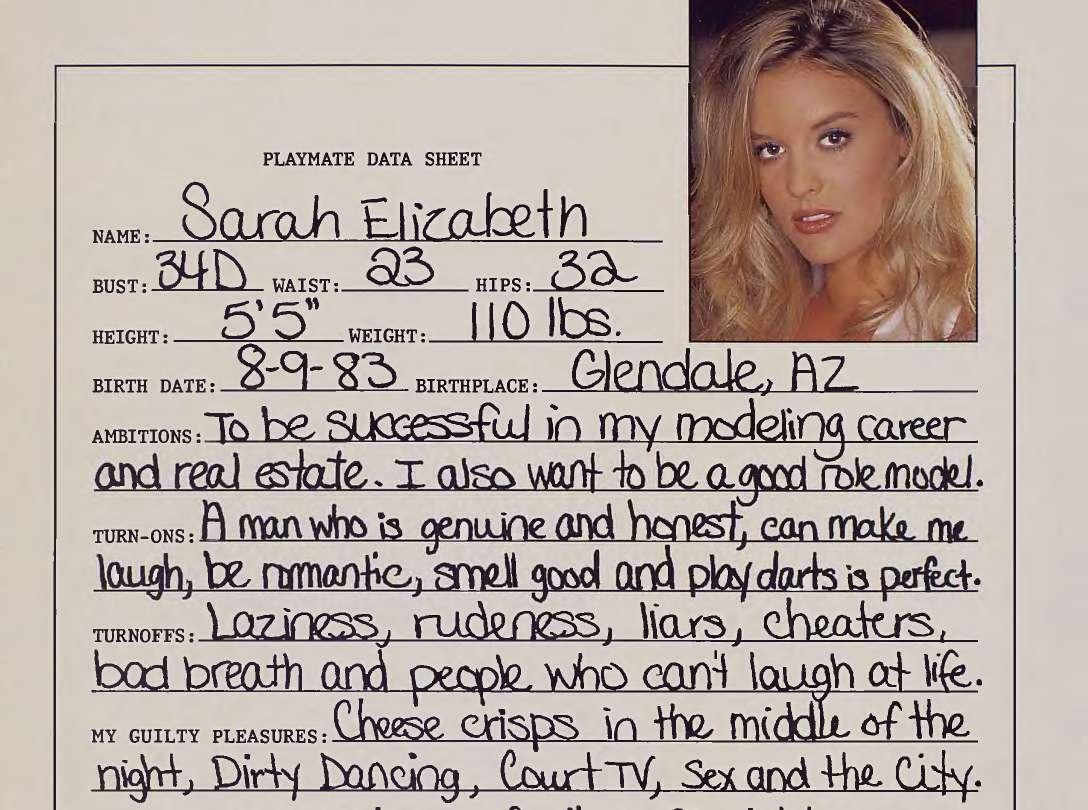 PLAYMATE DATA SHEET
NAME: Sarah Elizabeth
BUST: 34D WAIST: 23 HIPS: 32
HEIGHT: 5'5" WEIGHT: 110 lbs.
BIRTH DATE: 8-9-83 BIRTHPLACE: Glendale, AZ
AMBITIONS: To be successful in my modeling career
and real estate. I also want to be a good role model.
TURN-ONS: A man who is genuine and honest, can make me
laugh, be romantic, smell good and play darts is perfect.
TURNOFFS: Laziness, rudeness, liars, cheaters,
bad breath and people who can't laugh at life.
MY GUILTY PLEASURES: Cheese crisps in the middle of the
night, Dirty Dancing, Court TV, Sex and the City.